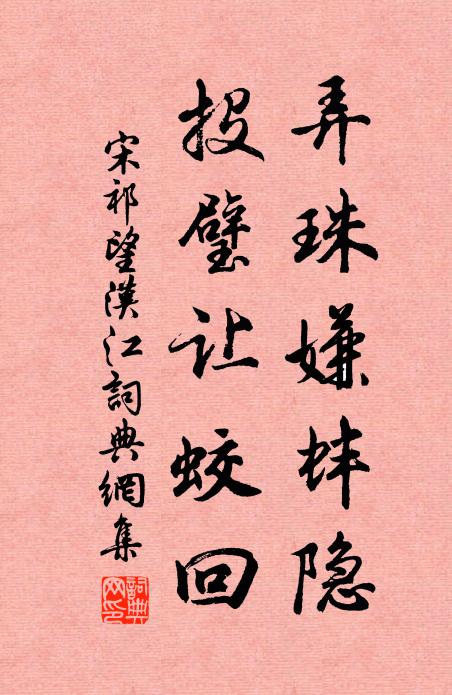 弄珠嫌蚌隐
投璧让蛟回
宋祁望漢江詞典網集
詞典
网印